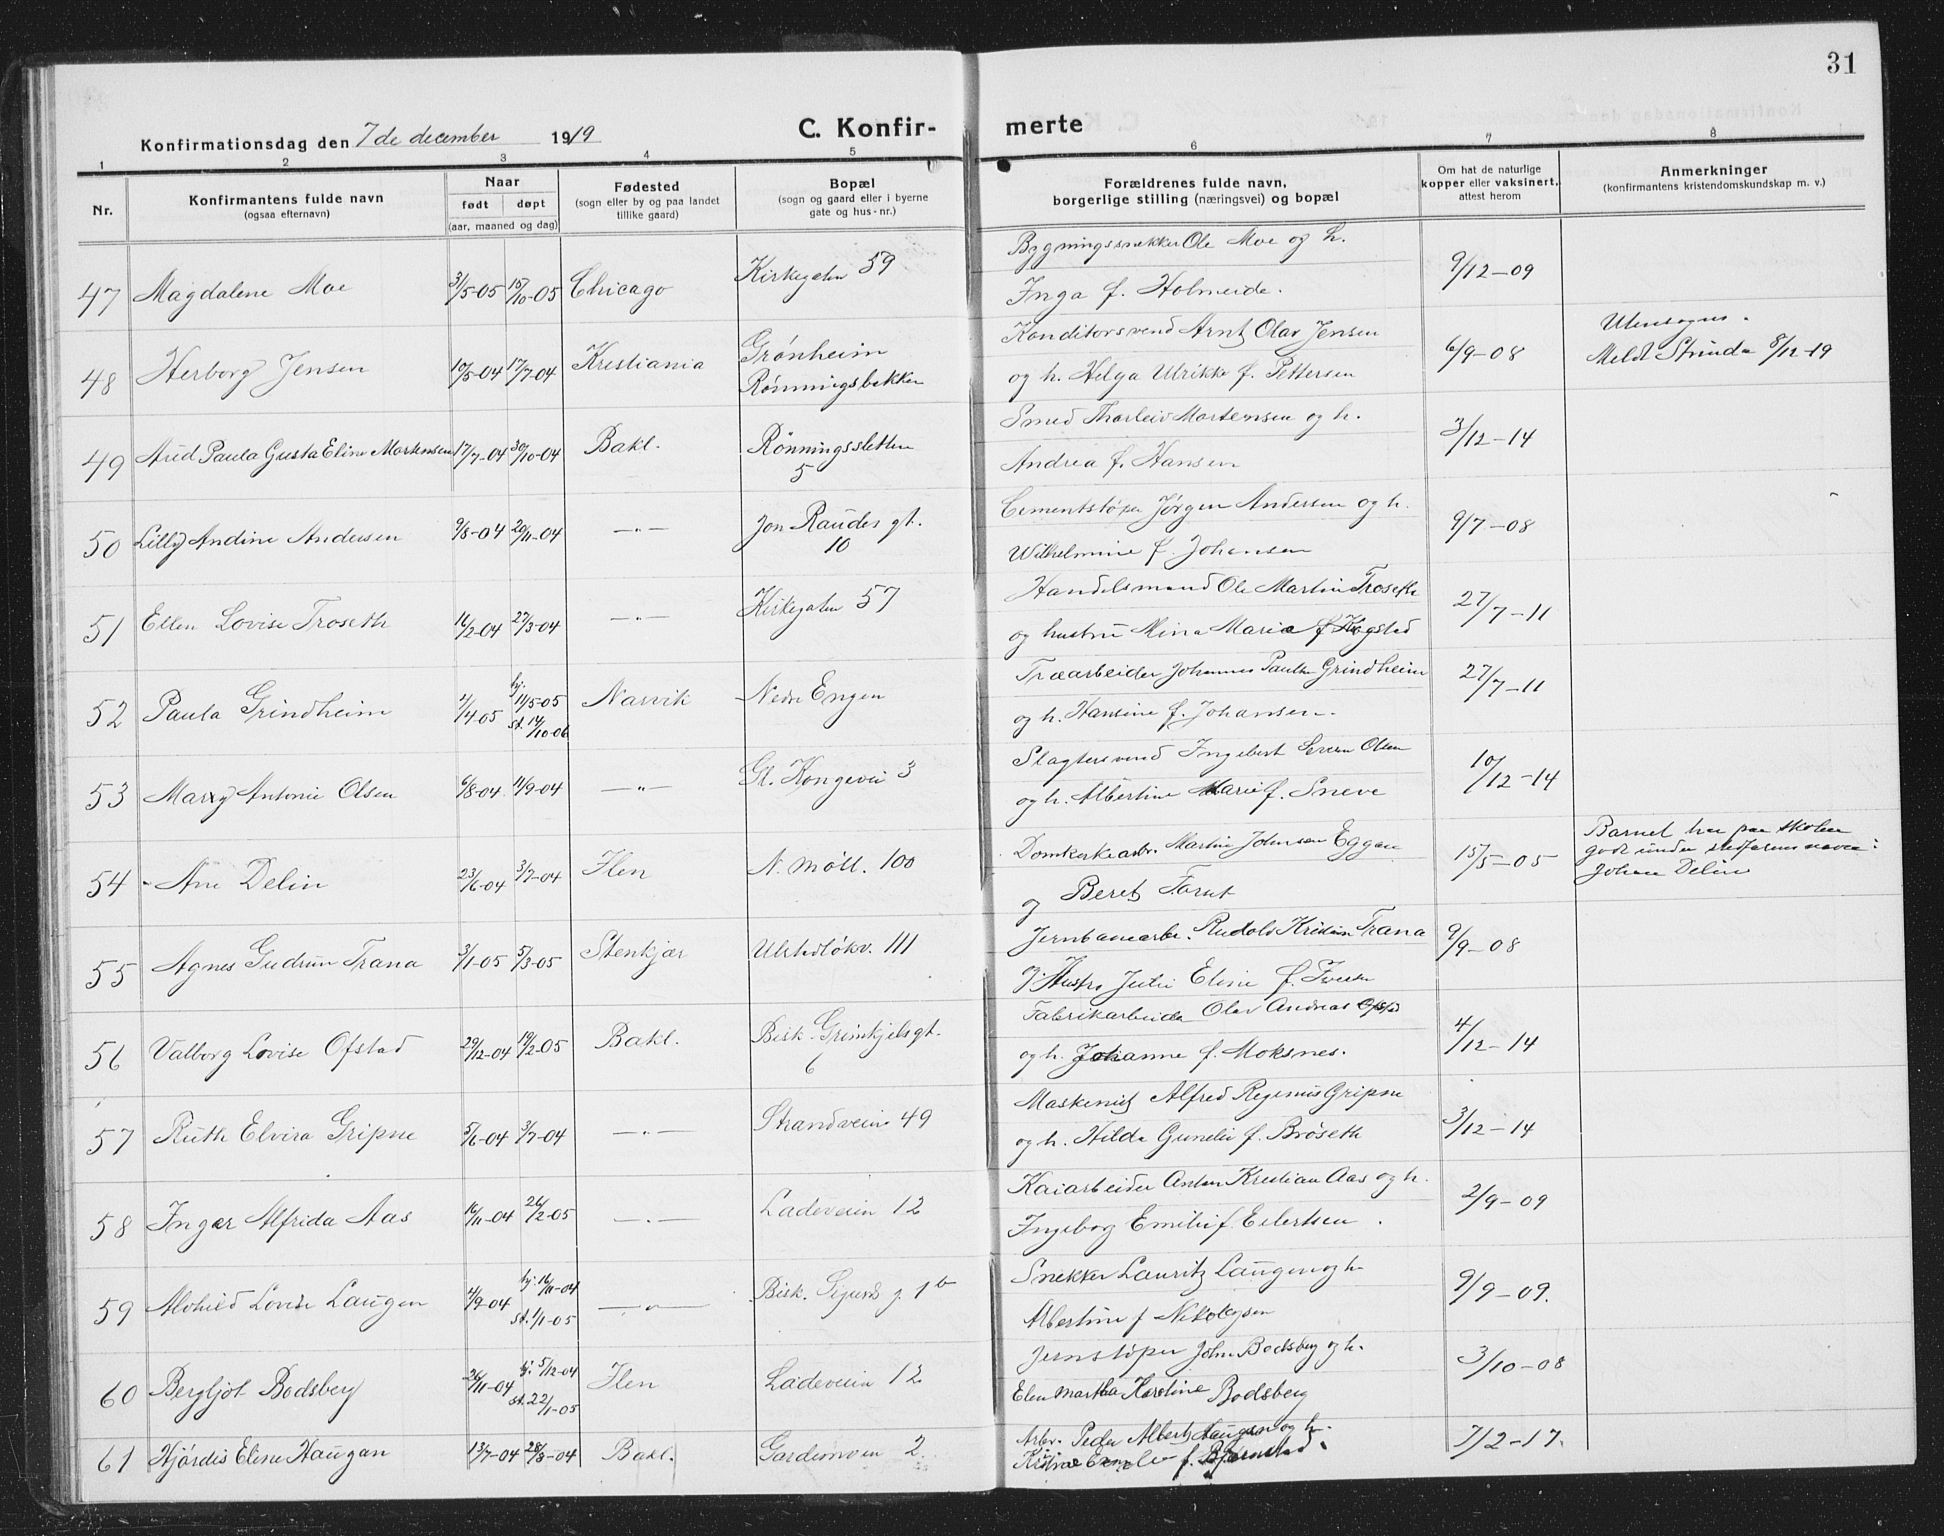 31
Konfirmationsdag den 7de december 1919
C. Konfirmerte
1 2 3 4 5 6 7 8
Nr.
Konfirmantens fulde navn
(ogsaa efternavn)
Naar
født døpt
(aar, maaned og dag)
Fødested
(sogn eller by og paa landet
tillike gaard)
Bopæl
(sogn og gaard eller i byerne
gate og hus-nr.)
Forældrenes fulde navn,
borgerlige stilling (næringsvei) og bopæl
Om hat de naturlige
kopper eller vaksinert,
attest herom
Anmerkninger
(konfirmantens kristendomskundskap m. v.)
47 Magdalene Moe 31/5-05 15/10-05 Chicago Kirkegaten 59
Bygningssnekker Ole Moe og h.
Inga f. Holmeide.
9/12-09
48 Herborg Jensen 10/5-04 17/7-04 Kristiania Grønheim
Rønningsbakken
Konditorsvend Arnt Olav Jensen
og h. Helga Ulrikke f. Pettersen
6/9-08
Utensogns.
Meldt Strinda 8/12-19
49 Aud Paula Gusta Eline Mortensen 17/7-04 30/10-04 Bakl. Rönningssletten
5
Smed Thorleiv Mortensen og h.
Andrea f. Hansen
3/12-14
50 Lilly Andine Andersen 9/8-04 20/11-04 —"— Jon Raudes gt.
10
Cementstøper Jørgen Andersen og h.
Wilhelmine f. Johansen
9/7-08
51 Ellen Lovise Troseth 16/2-04 27/3-04 —"— Kirkegaten 57
Handelsmand Ole Martin Troseth
og hustru Mina Marie f. Hogstad
27/7-11
52 Paula Grindheim 4/4-05 hj. 11/5-05
st. 14/10-06 Narvik Nedre Engen
Træarbeider Johannes Paulsen Grindheim
og h. Hansine f. Johansen.
27/7-11
53 Mary Antonie Olsen 6/8-04 11/9-04 —"— Gl. Kongevei 3
Slagtersvend Ingebert Severin Olsen
og h. Albertine Marie f. Sneve
10/12-14
54 Ane Delin 23/6-04 3/7-04 Ilen N. Möll. 100
Domkirkearb. Martin Johnsen Eggan
og Beret Tarut
15/5-05
Barnet har paa skolen
gaat under stefarens navn:
Johan Delin
55 Agnes Gudrun Trana 3/1-05 5/3-05 Stenkjær Ulstadløkv. 111
Jernbanearb. Rudolv Kristian Trana
og Hustru Julie Eline f. Tveter
9/9-08
56 Valborg Lovise Ofstad 29/12-04 19/2-05 Bakl. Bisk. Grimkjelsgt.
6
Fabrikarbeider Olav Andreas Ofstad
og h. Johanne f. Moksnes.
4/12-14
57 Ruth Elvira Gripne 5/6-04 3/7-04 —"— Strandveien 49
Maskenist Alfred Regenius Gripne
og h. Hilda Gunelie f. Brøseth
3/12-14
58 Inger Alfrida Aas 16/11-04 26/2-05 —"— Ladeveien 12
Kaiarbeider Anton Kristian Aas og h.
Ingeborg Emilie f. Eilertsen.
2/9-09
59 Alvhild Lovise Laugen 4/9-04 hj. 16/11-04
st. 1/1-05 —"— Bisk. Sigurds g. 1b
Snekker Lauritz Laugen og h.
Albertine f. Nikolaysen
9/9-09.
60 Bergljot Bodsberg 26/11-04 hj. 5/12-04
st. 22/1-05 Ilen Ladeveien 12
Jernstöper John Bodsberg og h.
Elen Martha Karoline Bodsberg
3/10-08
61 Hjördis Eline Haugan 13/7-04 28/8-04 Bakl. Gardemoen 2
Arb. Peder Albert Haugan og h.
Kristine f. Bjørnstad.
7/2-17.